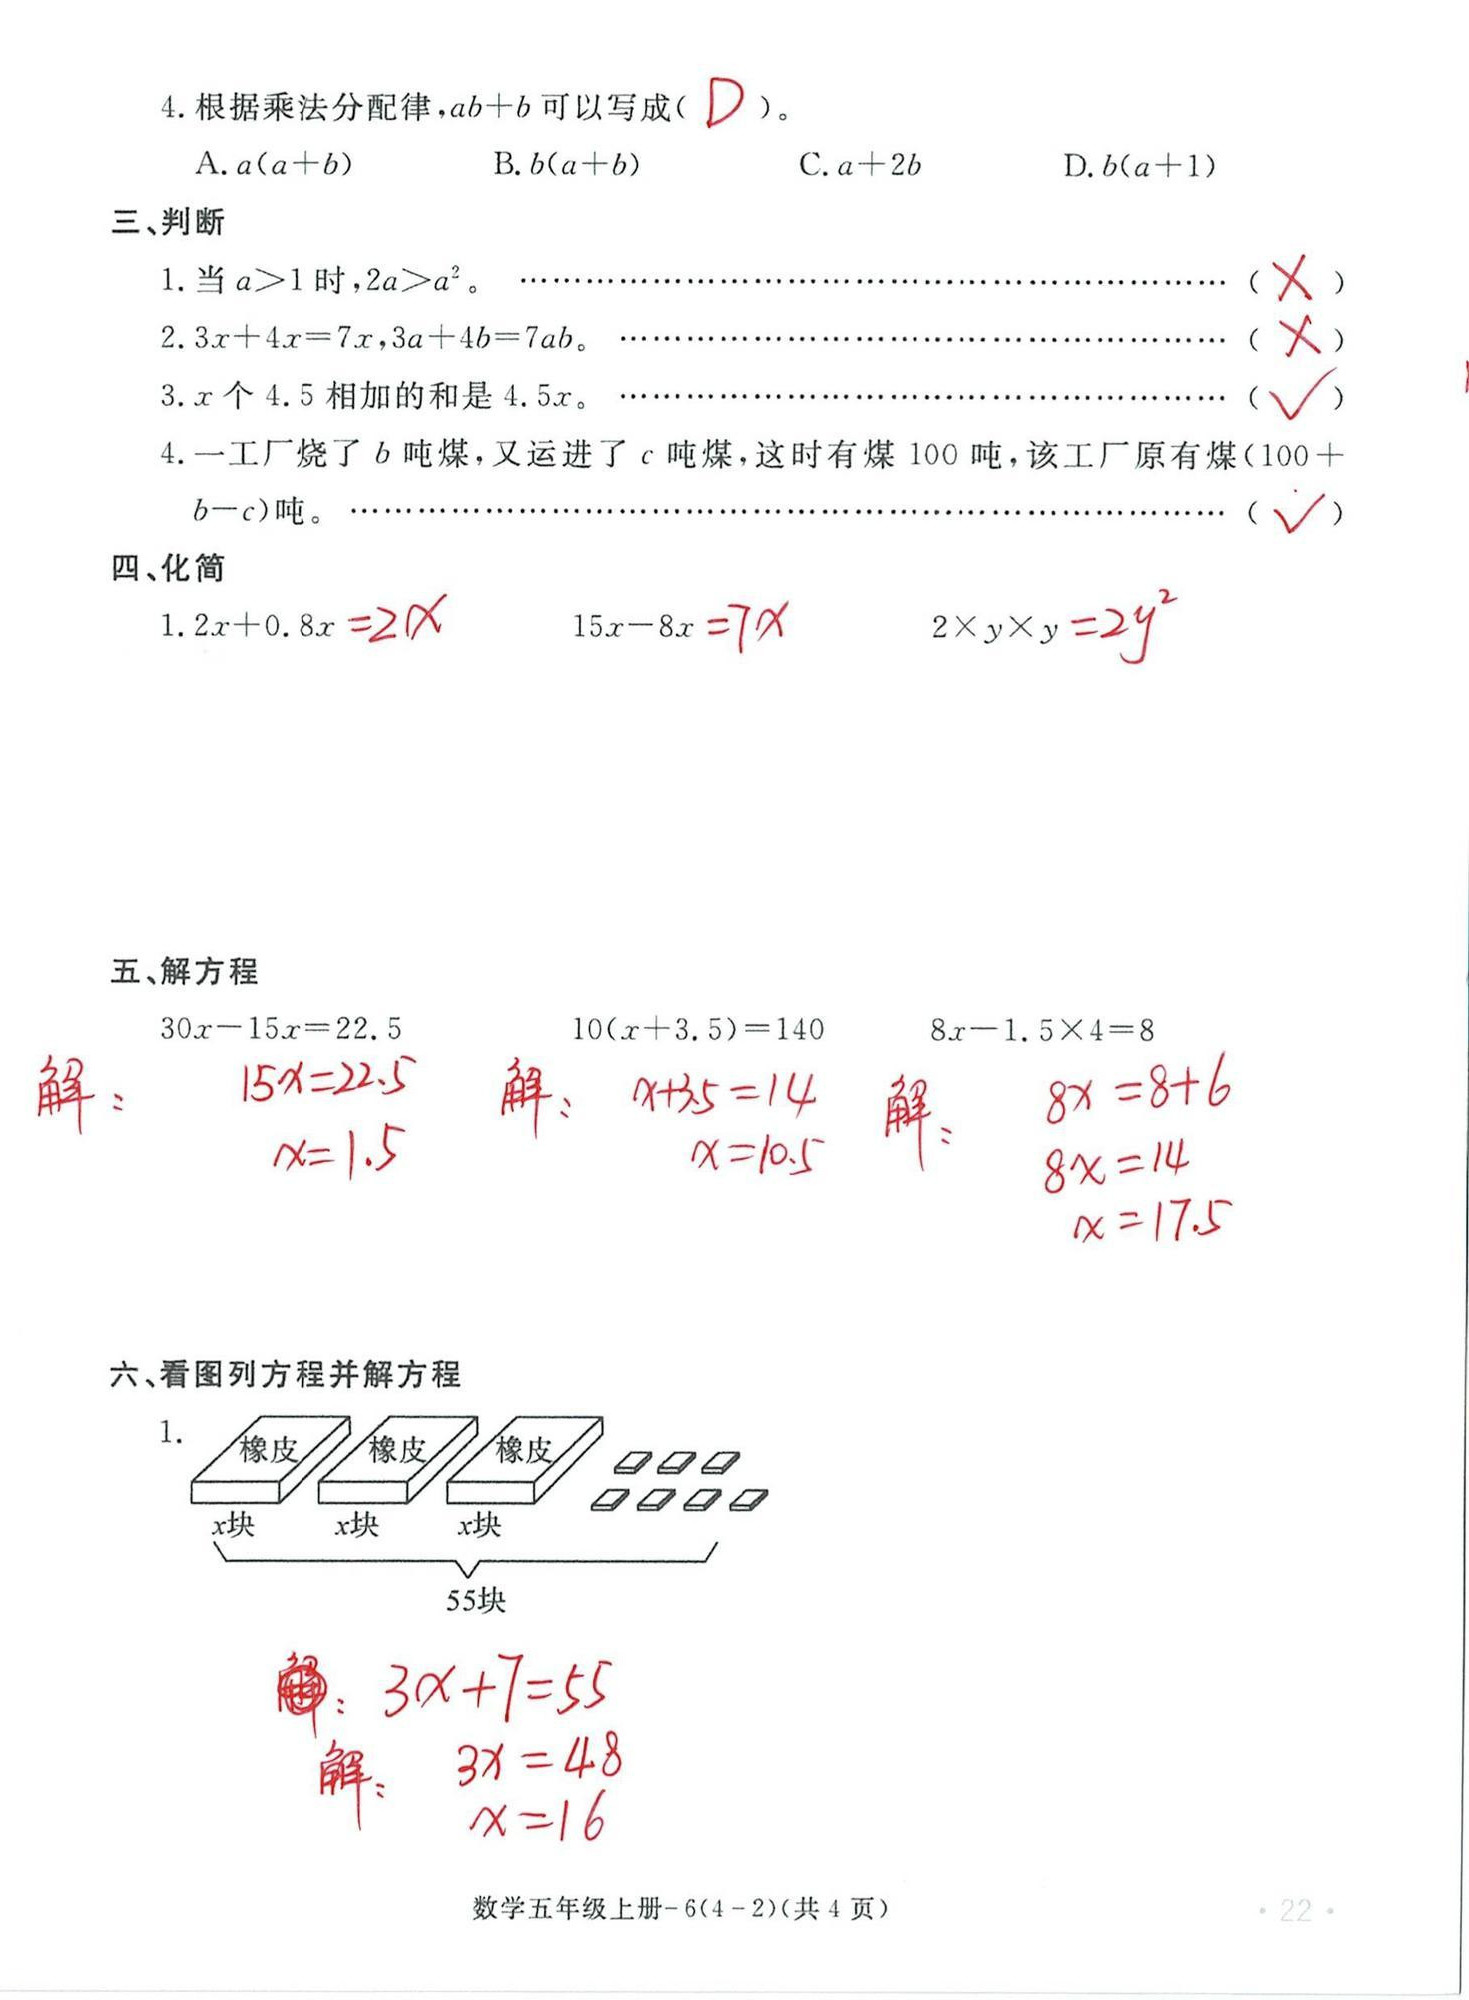 4. 根据乘法分配律,ab+b可以写成( D )。
A. a(a+b) B. b(a+b) C. a+2b D. b(a+1)
三、判断
1. 当 a>1 时,2a>a²。 ………………………………………………………… ( × )
2. 3x+4x=7x,3a+4b=7ab。 ………………………………………………… ( × )
3. x 个 4.5 相加的和是 4.5x。 ………………………………………………… ( √ )
4. 一工厂烧了 b 吨煤,又运进了 c 吨煤,这时有煤 100 吨,该工厂原有煤(100+
b-c)吨。 ……………………………………………………………………… ( √ )
四、化简
1. 2x+0.8x =2x 15x-8x =7x 2×y×y =2y²
五、解方程
30x-15x=22.5 10(x+3.5)=140 8x-1.5×4=8
解: 15x=22.5 解: x+3.5=14 解: 8x=8+6
x=1.5 x=10.5 8x=14
x=17.5
六、看图列方程并解方程
1.
橡皮 橡皮 橡皮
x块 x块 x块
55块
解: 3x+7=55
解: 3x=48
x=16
数学五年级上册-6(4-2)(共 4 页)
·22·